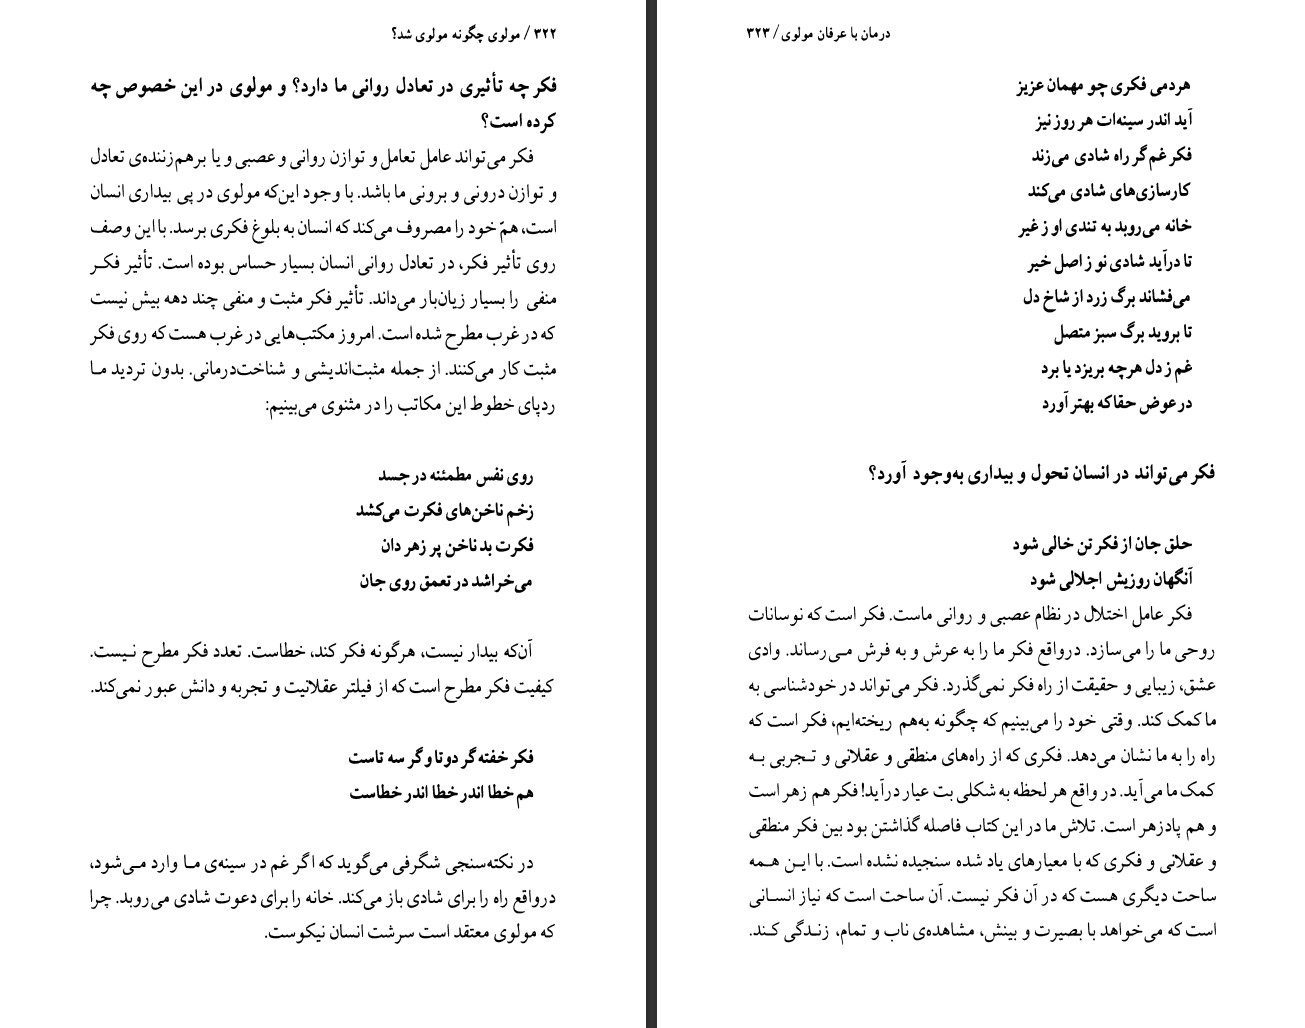 ۳۲۲ / مولوی چگونه مولوی شد؟
فکر چه تأثیری در تعادل روانی ما دارد؟ و مولوی در این خصوص چه
کرده است؟
فکر می‌تواند عامل تعامل و توازن روانی و عصبی و یا برهم‌زننده‌ی تعادل
و توازن درونی و برونی ما باشد. با وجود این‌که مولوی در پی بیداری انسان
است، همّ خود را مصروف می‌کند که انسان به بلوغ فکری برسد. با این وصف
روی تأثیر فکر، در تعادل روانی انسان بسیار حساس بوده است. تأثیر فکر
منفی را بسیار زیان‌بار می‌داند. تأثیر فکر مثبت و منفی چند دهه بیش نیست
که در غرب مطرح شده است. امروز مکتب‌هایی در غرب هست که روی فکر
مثبت کار می‌کنند. از جمله مثبت‌اندیشی و شناخت‌درمانی. بدون تردید ما
ردپای خطوط این مکاتب را در مثنوی می‌بینیم:
روی نفس مطمئنه در جسد
زخم ناخن‌های فکرت می‌کشد
فکرت بد ناخن پر زهر دان
می‌خراشد در تعمق روی جان
آن‌که بیدار نیست، هرگونه فکر کند، خطاست. تعدد فکر مطرح نیست.
کیفیت فکر مطرح است که از فیلتر عقلانیت و تجربه و دانش عبور نمی‌کند.
فکر خفته گر دوتا و گر سه تاست
هم خطا اندر خطا اندر خطاست
در نکته‌سنجی شگرفی می‌گوید که اگر غم در سینه‌ی ما وارد می‌شود،
درواقع راه را برای شادی باز می‌کند. خانه را برای دعوت شادی می‌روبد. چرا
که مولوی معتقد است سرشت انسان نیکوست.
درمان با عرفان مولوی / ۳۲۳
هردمی فکری چو مهمان عزیز
آید اندر سینه‌ات هر روز نیز
فکر غم گر راه شادی می‌زند
کارسازی‌های شادی می‌کند
خانه می‌روبد به تندی او ز غیر
تا درآید شادی نو ز اصل خیر
می‌فشاند برگ زرد از شاخ دل
تا بروید برگ سبز متصل
غم ز دل هرچه بریزد یا برد
در عوض حقا که بهتر آورد
فکر می‌تواند در انسان تحول و بیداری به‌وجود آورد؟
حلق جان از فکر تن خالی شود
آنگهان روزیش اجلالی شود
فکر عامل اختلال در نظام عصبی و روانی ماست. فکر است که نوسانات
روحی ما را می‌سازد. درواقع فکر ما را به عرش و به فرش می‌رساند. وادی
عشق، زیبایی و حقیقت از راه فکر نمی‌گذرد. فکر می‌تواند در خودشناسی به
ما کمک کند. وقتی خود را می‌بینیم که چگونه به‌هم ریخته‌ایم، فکر است که
راه را به ما نشان می‌دهد. فکری که از راه‌های منطقی و عقلانی و تجربی به
کمک ما می‌آید. در واقع هر لحظه به شکلی بت عیار درآید! فکر هم زهر است
و هم پادزهر است. تلاش ما در این کتاب فاصله گذاشتن بود بین فکر منطقی
و عقلانی و فکری که با معیارهای یاد شده سنجیده نشده است. با این همه
ساحت دیگری هست که در آن فکر نیست. آن ساحت است که نیاز انسانی
است که می‌خواهد با بصیرت و بینش، مشاهده‌ی ناب و تمام، زندگی کند.